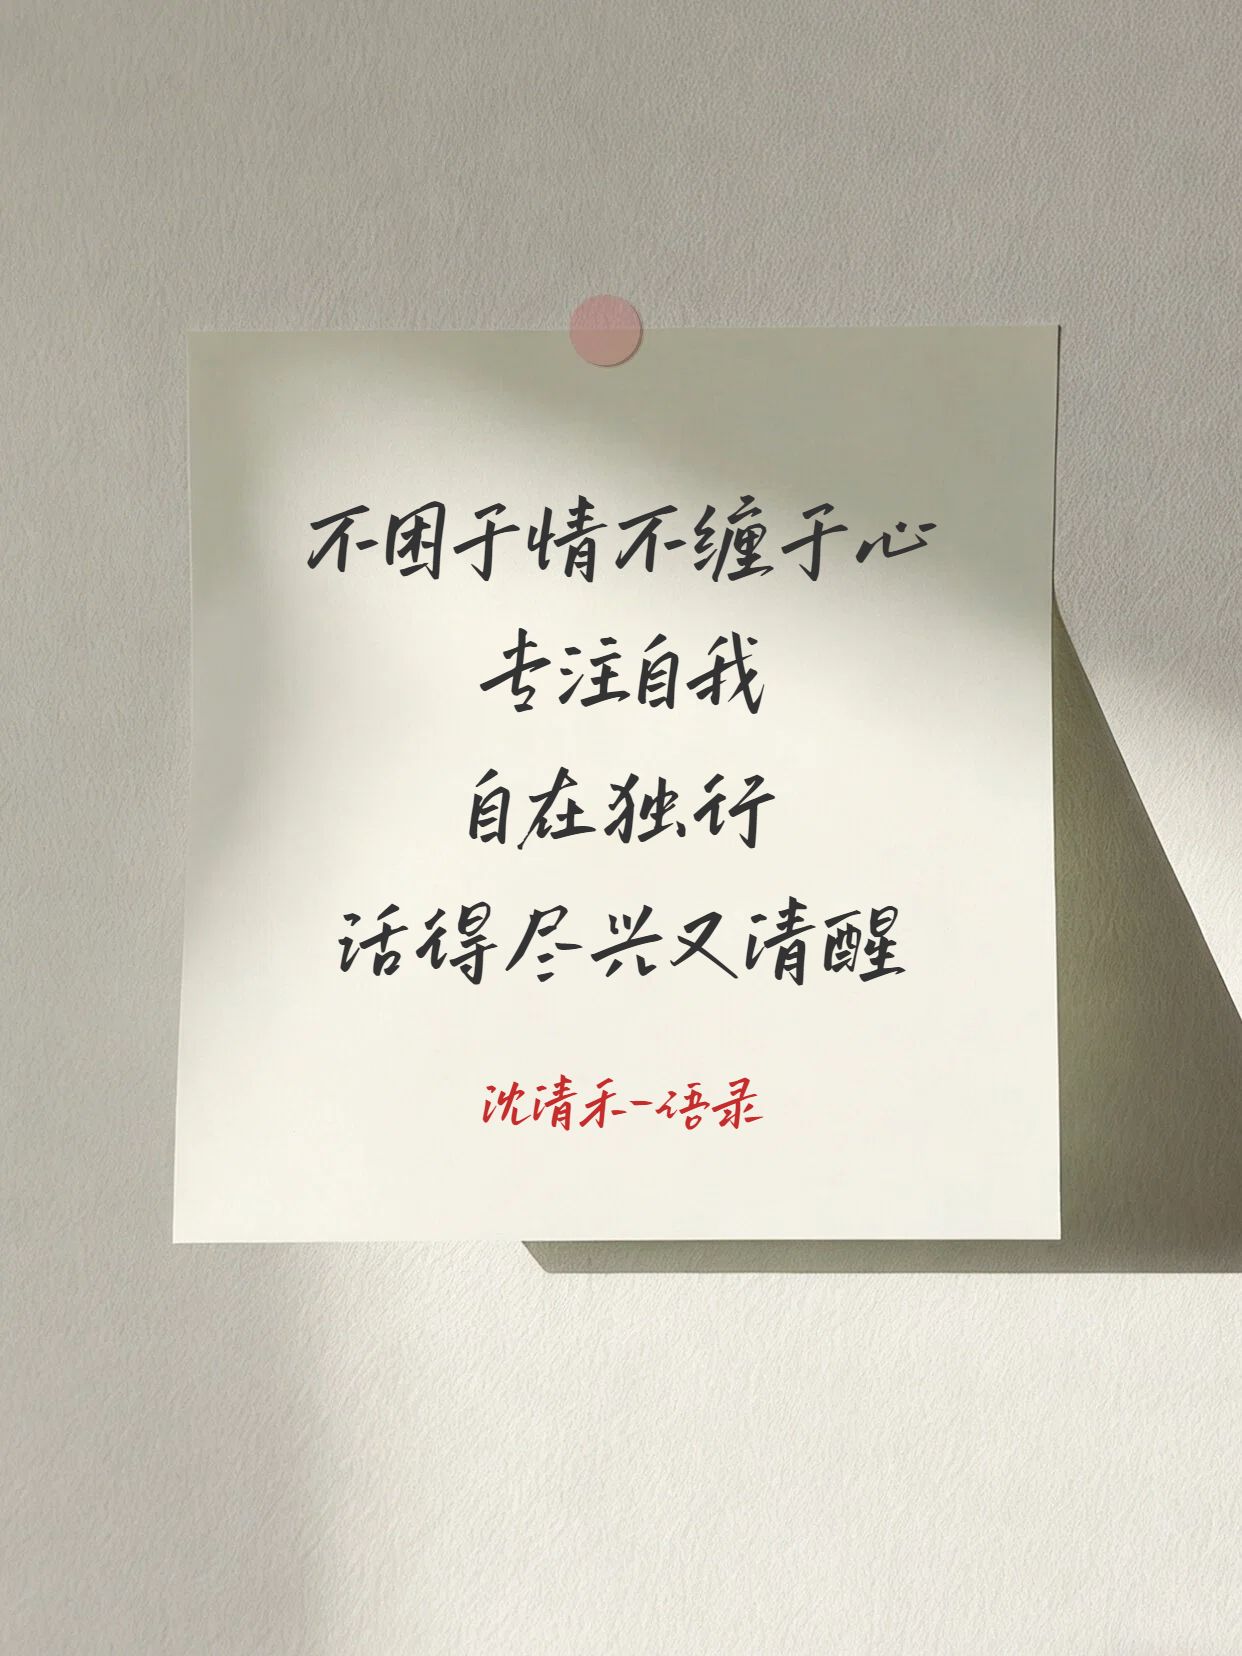 不困于情不缠于心
专注自我
自在独行
活得尽兴又清醒
沈清禾-语录